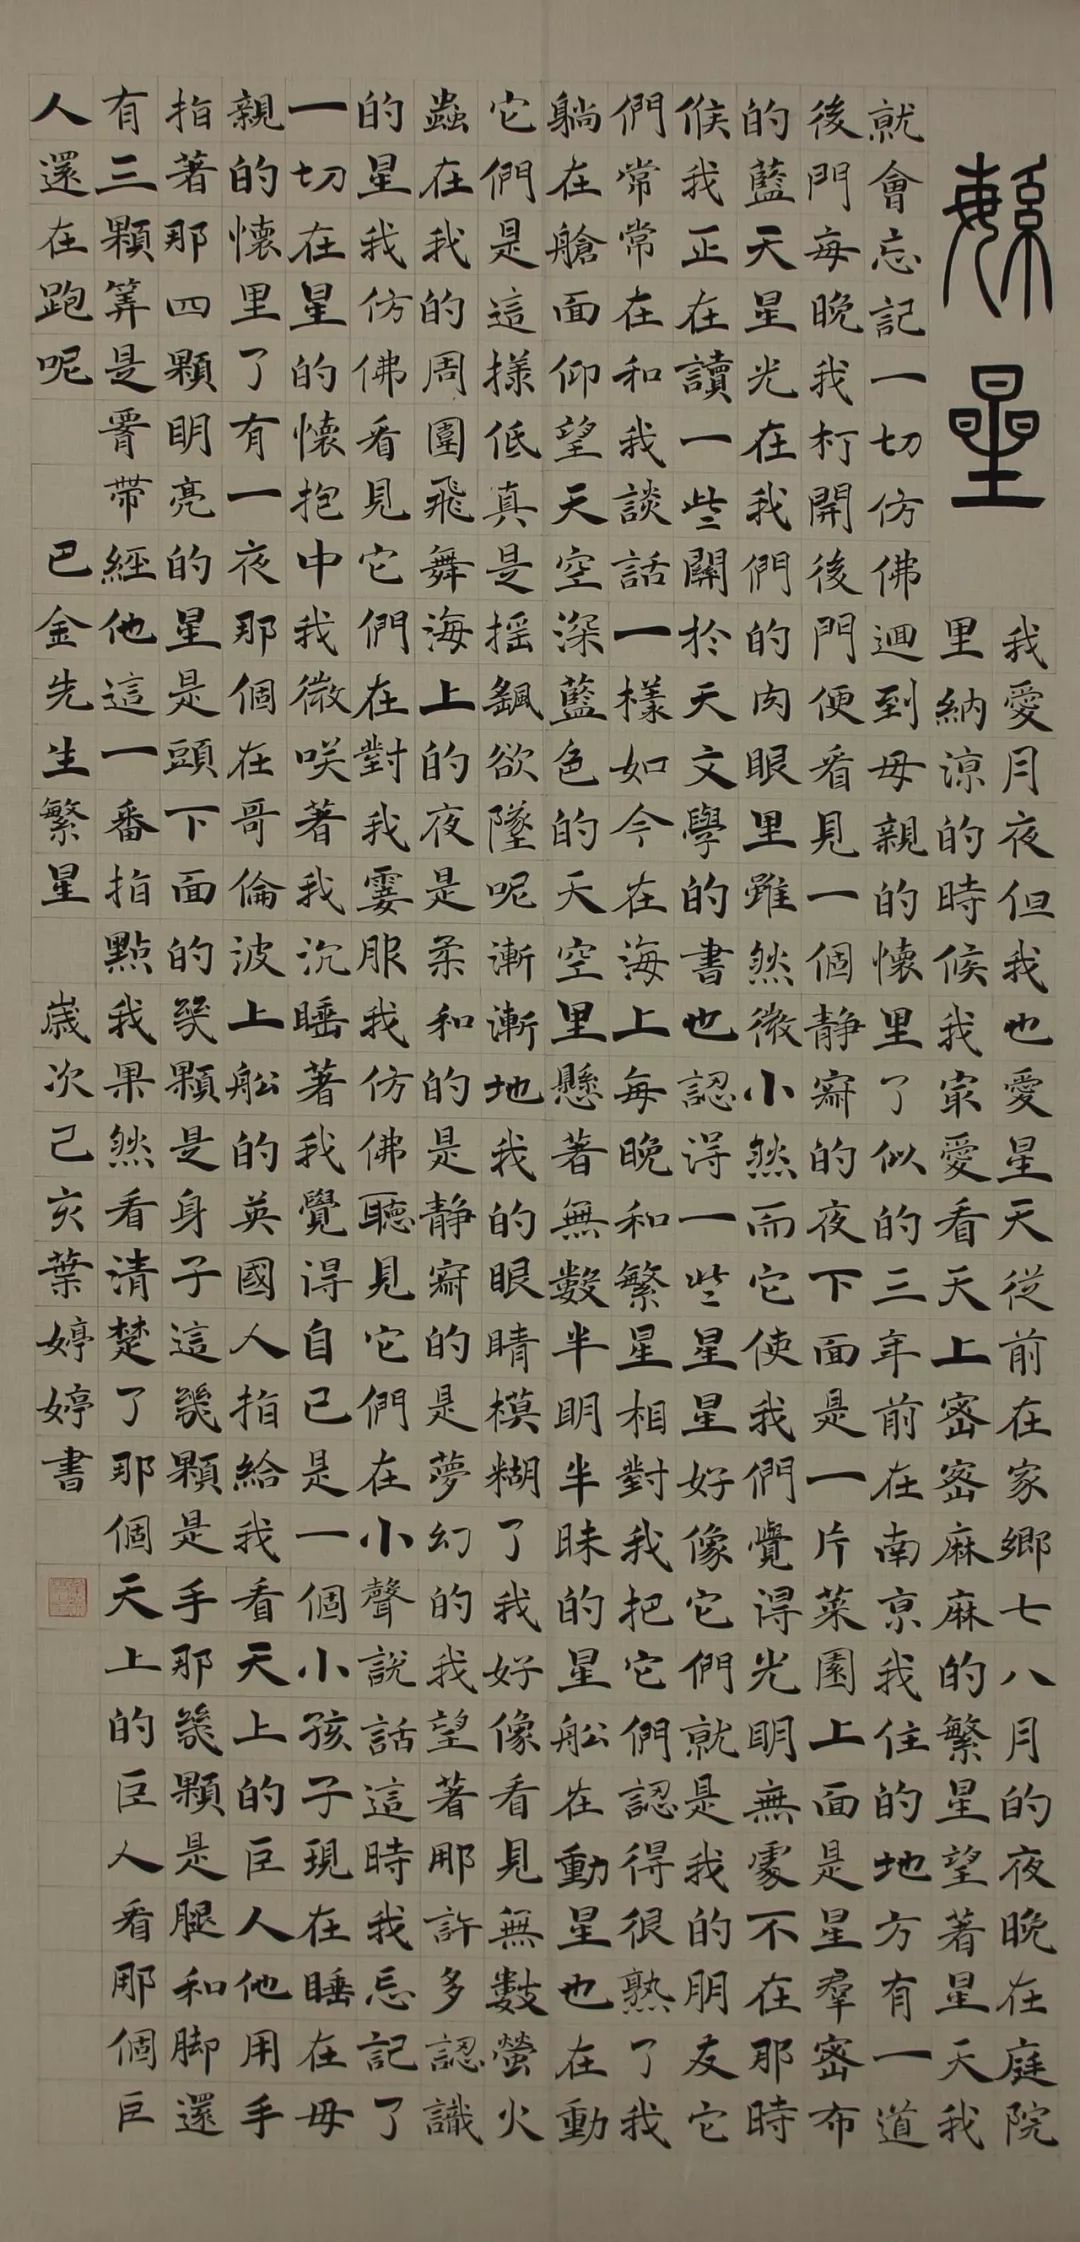 繁星
我愛月夜但我也愛星天從前在家鄉七八月的夜晚在庭院
里納涼的時候我㝡愛看天上密密麻麻的繁星望著星天我
就會忘記一切仿佛迴到母親的懷里了似的三年前在南京我住的地方有一道
後門每晚我打開後門便看見一個静寂的夜下面是一片菜園上面是星羣密布
的藍天星光在我們的肉眼里雖然微小然而它使我們覺得光明無處不在那時
候我正在讀一些關於天文學的書也認得一些星星好像它們就是我的朋友它
們常常在和我談話一樣如今在海上每晚和繁星相對我把它們認得很熟了我
躺在艙面仰望天空深藍色的天空里懸著無數半明半昧的星船在動星也在動
它們是這樣低真是摇飖欲墜呢漸漸地我的眼睛模糊了我好像看見無數螢火
蟲在我的周圍飛舞海上的夜是柔和的是静寂的是夢幻的我望著那許多認識
的星我仿佛看見它們在對我霎服我仿佛聽見它們在小聲說話這時我忘記了
一切在星的懷抱中我微笑著我沉睡著我覺得自己是一個小孩子現在睡在母
親的懷里了有一夜那個在哥倫波上船的英國人指給我看天上的巨人他用手
指著那四顆明亮的星是頭下面的幾顆是身子這幾顆是手那幾顆是腿和脚還
有三顆算是腰帶經他這一番指點我果然看清楚了那個天上的巨人看那個巨
人還在跑呢 巴金先生繁星 歲次己亥葉婷婷書